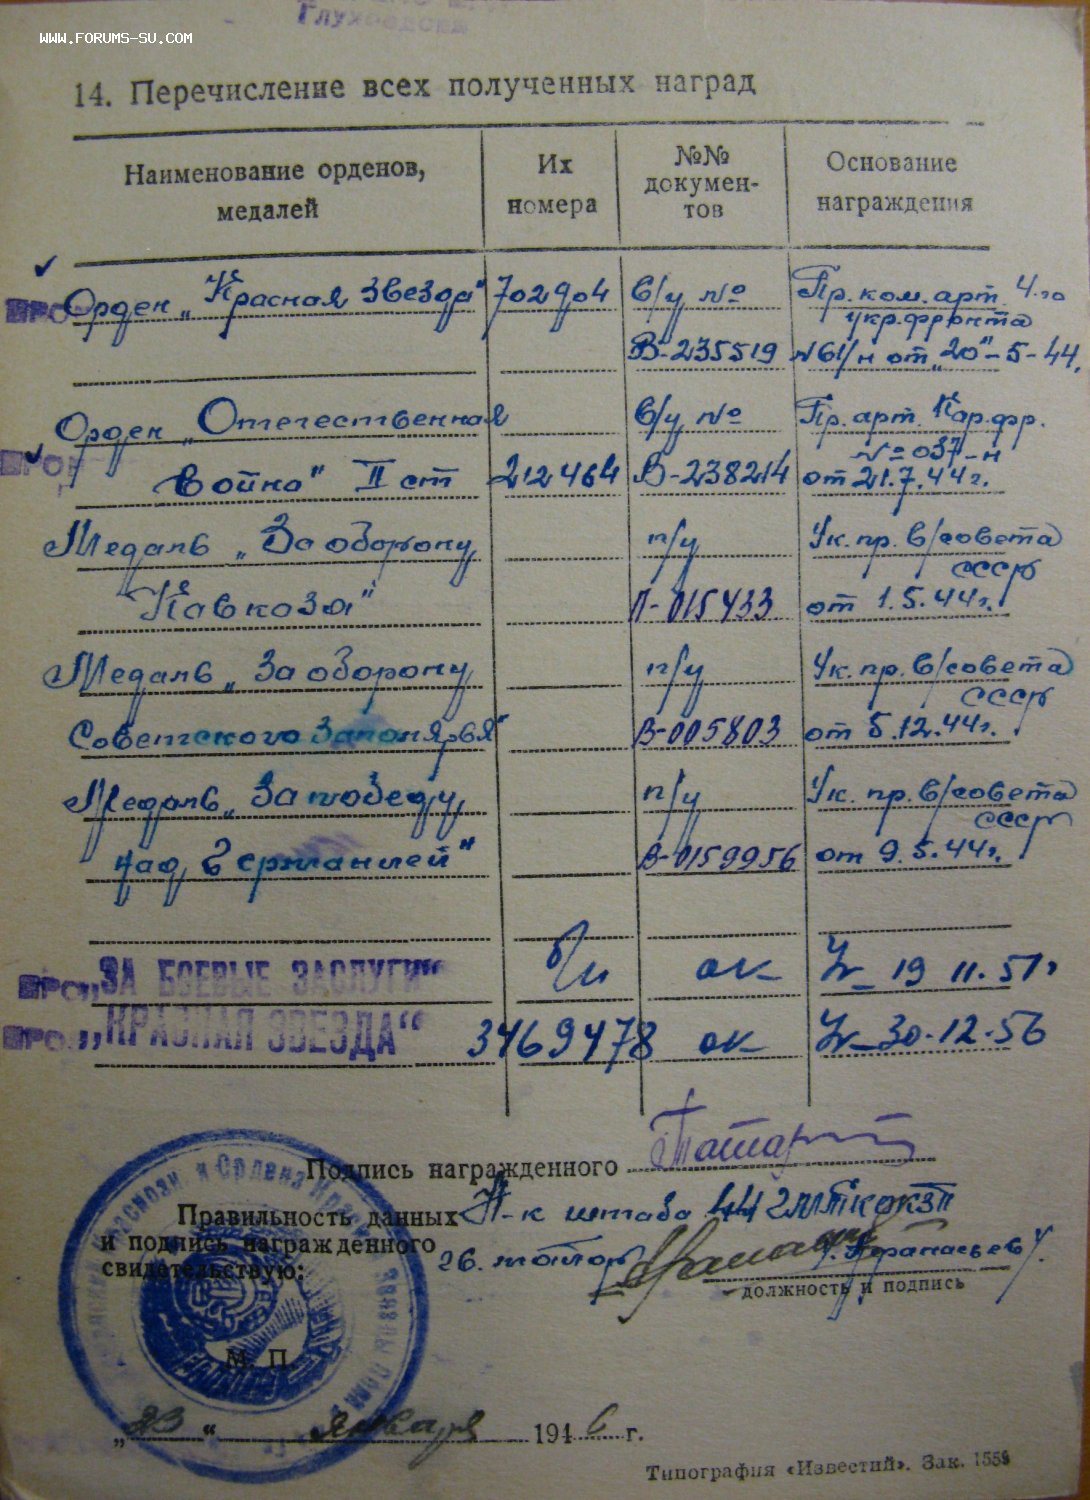 Глуховдова
WWW.FORUMS-SU.COM
14. Перечисление всех полученных наград
Наименование орденов, медалей
Их номера
№№ докумен-тов
Основание награждения
Орден „Красная звезда" 702904 в/у № Пр. ком. арт. 4-го
укр. фронта
В-235519 №61/н от „20"-5-44.
Орден „Отечественная в/у № Пр. арт. Кар. фр.
№=037-н
война" II ст 212464 В-238214 от 21.7.44г.
Медаль „За оборону п/у Ук. пр. в/совета
СССР
Кавказа" Л-015433 от 1.5.44г.
Медаль „За оборону п/у Ук. пр. в/совета
СССР
Советского Заполярья" В-005803 от 5.12.44г.
Медаль „За победу п/у Ук. пр. в/совета
СССР
над Германией" В-0159956 от 9.5.44г.
„ЗА БОЕВЫЕ ЗАСЛУГИ" б/н ок Ук 19 11.51г
„КРАСНАЯ ЗВЕЗДА" 3469478 ок Ук 30.12.56
Подпись награжденного
Правильность данных
и подпись награжденного
свидетельствую:
Н-к штаба 44
гв. майор Афанасьев
должность и подпись
М. П.
„23" января 1946 г.
Типография «Известий». Зак. 1559